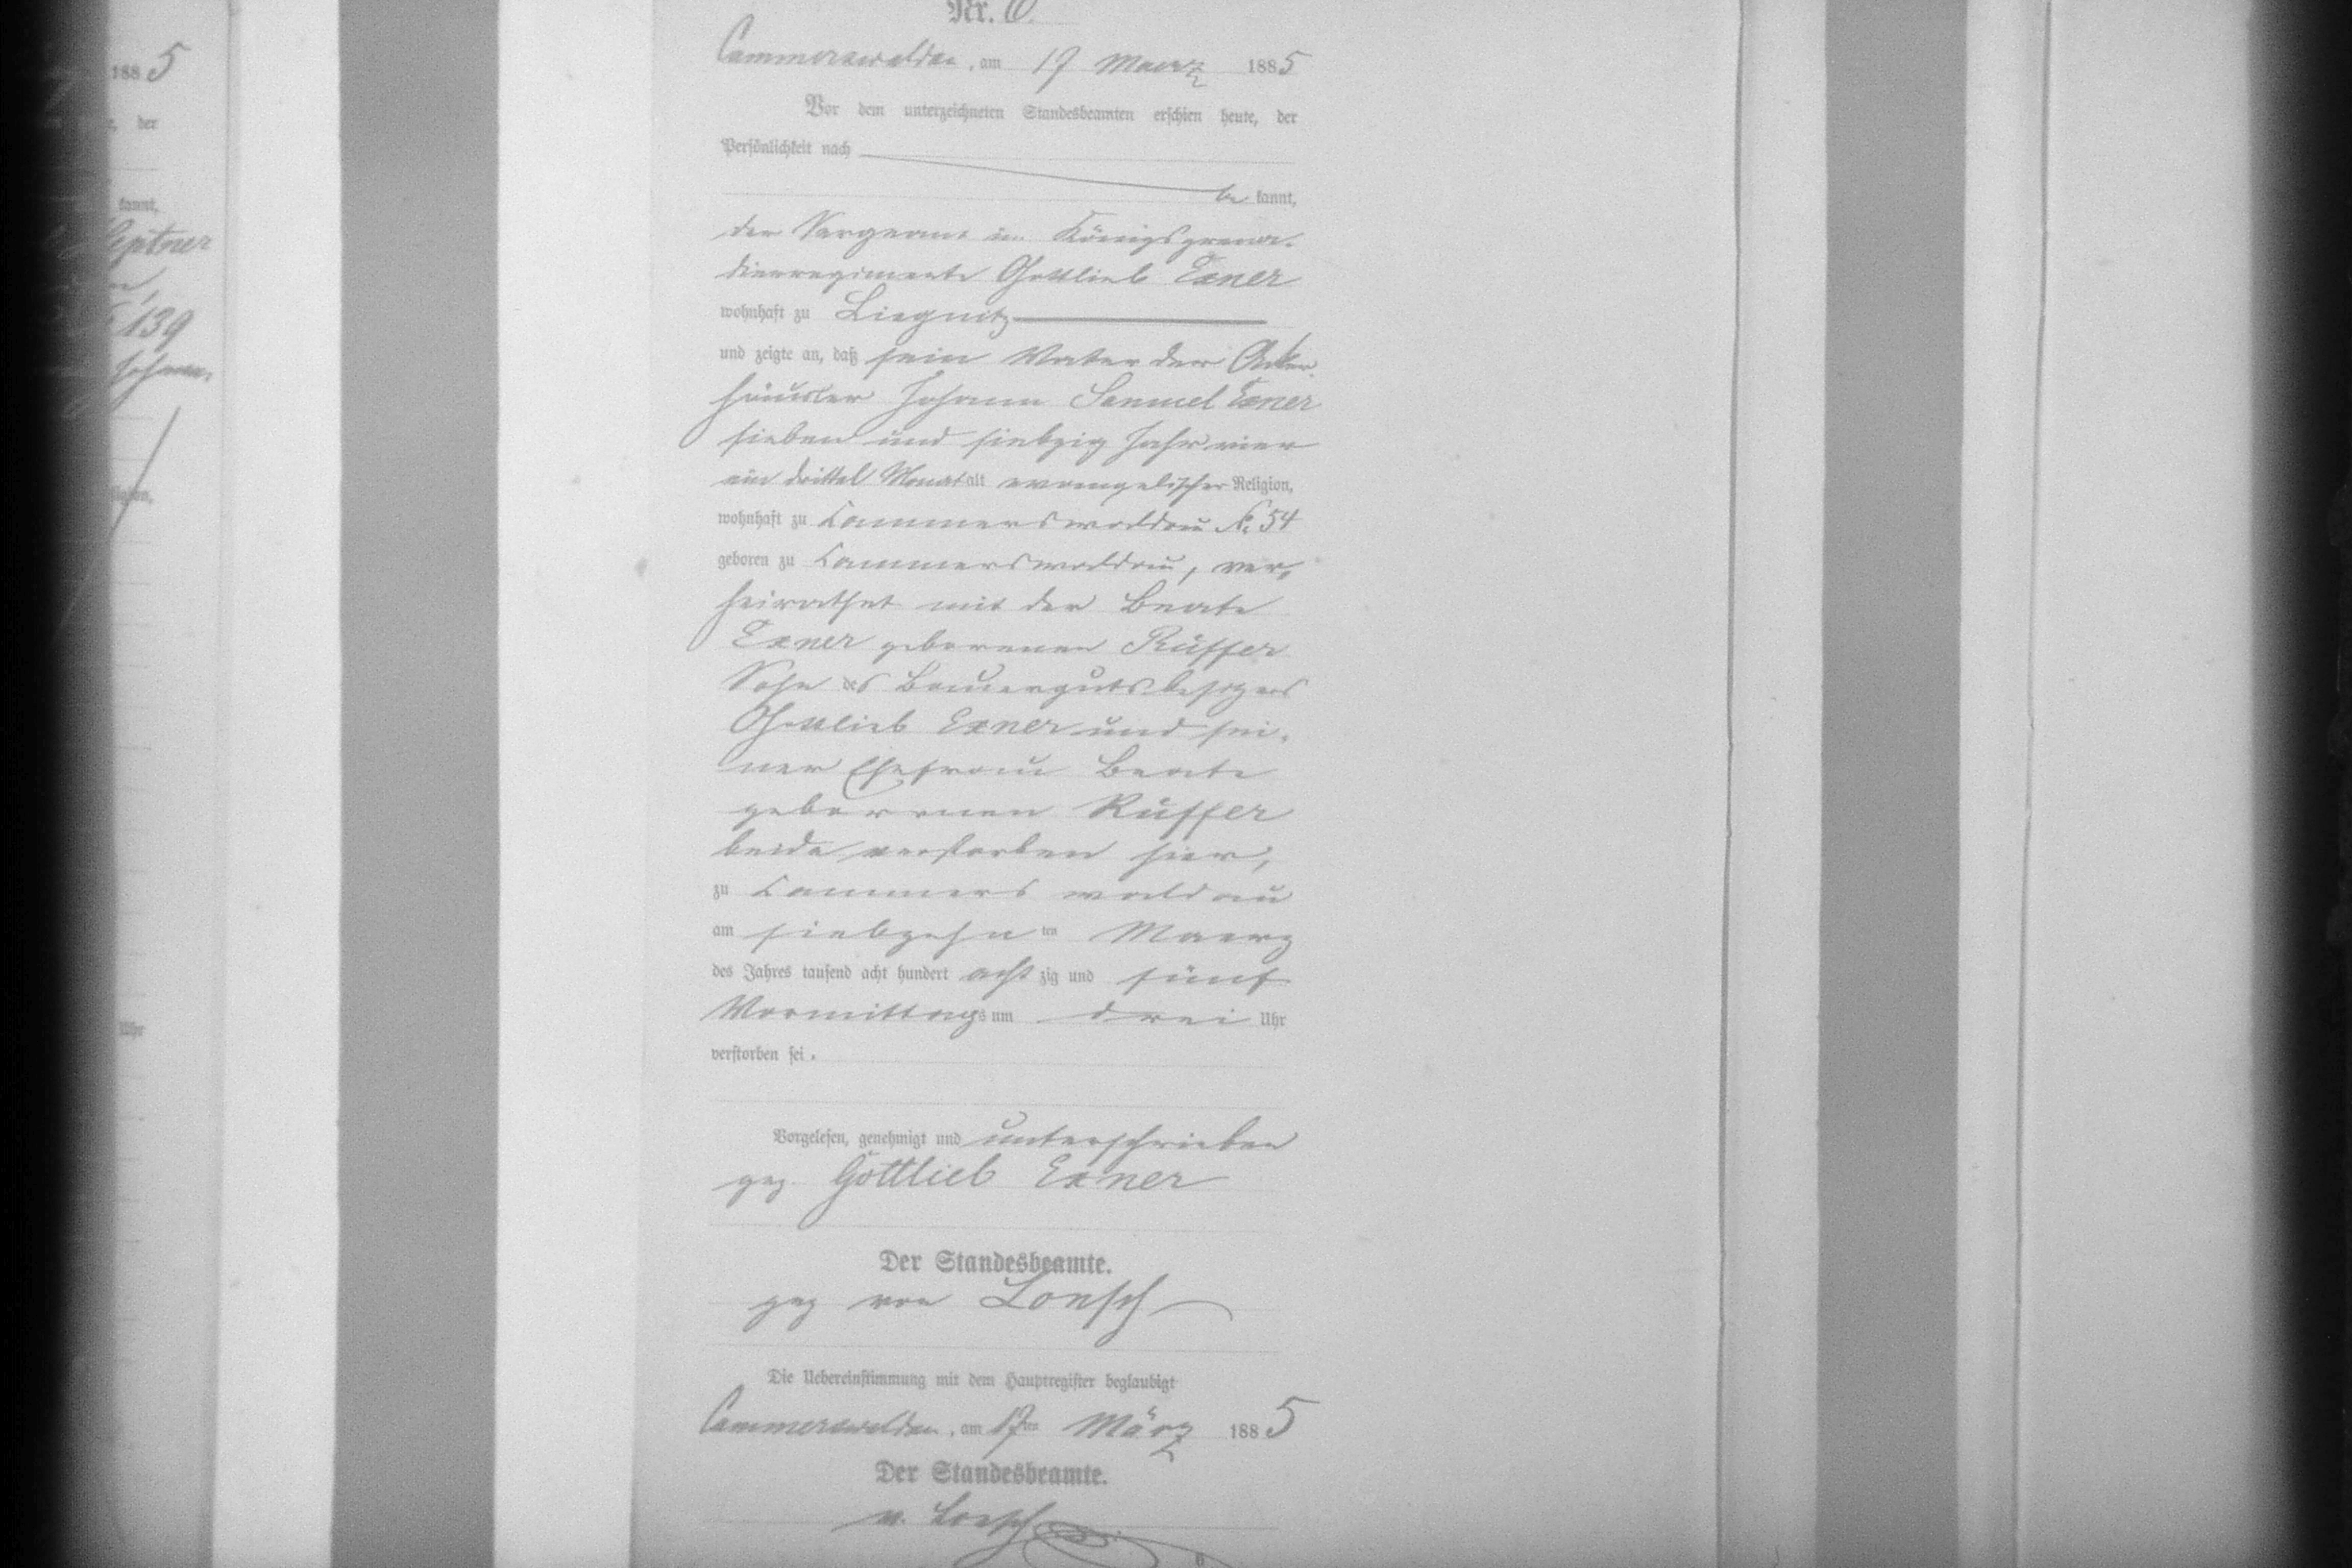 1885
der
kannt,
139
Religion,
Uhr
Nr. 6.
Cammerswaldau, am 17 Maerz 1885
Vor dem unterzeichneten Standesbeamten erschien heute, der
Persönlichkeit nach
be kannt,
der Sergeant im Königsgrena-
dierregimente Gottlieb Exner
wohnhaft zu Liegnitz
und zeigte an, daß sein Vater der Acker-
häusler Johann Samuel Exner
sieben und siebzig Jahr vier
ein drittel Monat alt evangelischer Religion,
wohnhaft zu Cammerswaldau N. 54
geboren zu Cammerswaldau, ver-
heirathet mit der Beate
Exner geborenen Rüffer
Sohn des Bauergutsbesitzers
Gottlieb Exner und sei-
ner Ehefrau Beate
geborenen Rüffer
beide verstorben hier,
zu Cammerswaldau
am siebzehn ten Maerz
des Jahres tausend acht hundert acht zig und fünf
Vormittags um drei Uhr
verstorben sei.
Vorgelesen, genehmigt und unterschrieben
gez. Gottlieb Exner
Der Standesbeamte.
gez von Loesch
Die Uebereinstimmung mit dem Hauptregister beglaubigt
Cammerswaldau, am 17ten März 1885
Der Standesbeamte.
v. Loesch